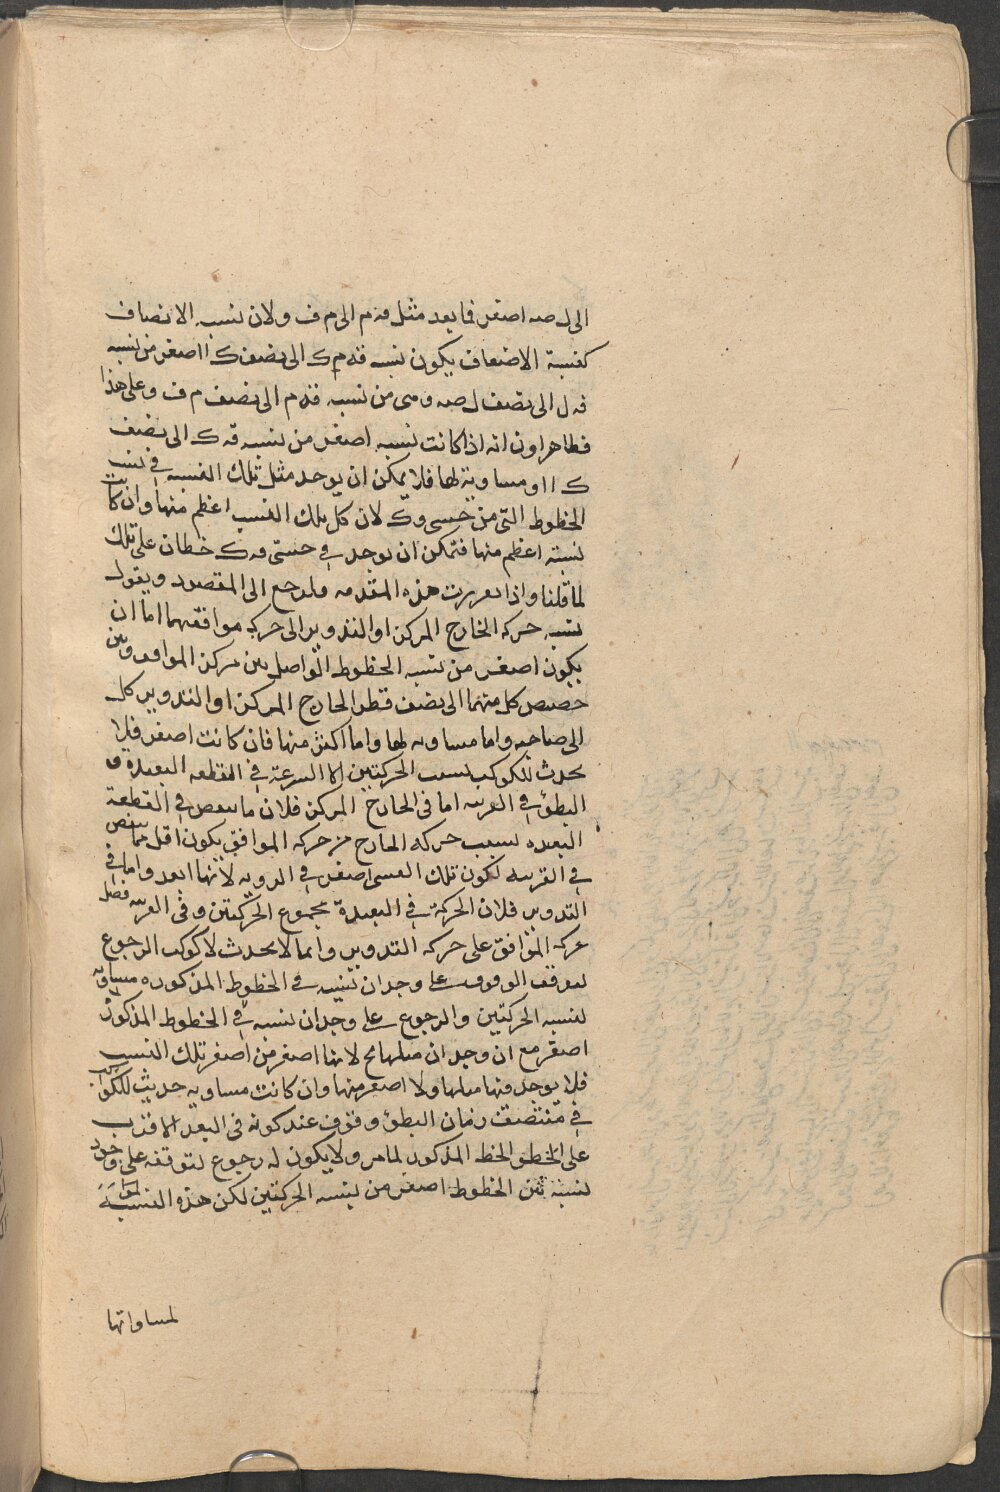 الى ل صه اصغر فما بعد مثل مه م الى م ف ولان نسبه الانصاف
كنسبة الاضعاف يكون نسبه قه م ك الى نصف ك ا اصغر من نسبه
فه ل الى نصف ل صه ومى من نسبه قه م الى نصف م ف وعلى هذا
فظاهر اون انه اذا كانت نسبه اصغر من نسبه قه ك الى نصف
ك ا او مساوية لها فلا يمكن ان يوجد مثل تلك النسبه فى نسب
الخطوط التى من وك لان كل تلك النسب اعظم منها وان كانت
نسبته اعظم منها فتمكن ان يوجد فى مه ك خطان على تلك
لما قلنا واذا تعررت هذه المقدمه فلنرجع الى المقصود ونقول
نسبه حركه الخارج المركز او التدوير الى حركه موافقهما اما ان
يكون اصغر من نسبه الخطوط الواصل بين مركز الموافق وبين
حضيض كل منهما الى نصف قطر الخارج المركز او التدوير كل
الى صاحبه واما مساويه لها واما اكثر منها فان كانت اصغر فلا
يحدث للكوكب بسبب الحركتين الا السرعة فى القطعه البعيده و
البطؤ فى القريبه اما فى الخارج المركز فلان ما ينقص فى القطعة
البعيده بسبب حركه الخارج من حركه الموافق يكون اقل مما ينقص
فى القريبه لكون تلك القسى اصغر فى الرويه لانها ابعد واما فى
التدوير فلان الحركة فى البعيدة مجموع الحركتين وفى القريبه فضل
حركه الموافق على حركه التدوير وانما لا يحدث للكوكب الرجوع
لتوقف الوقوف على وجدان نسبه فى الخطوط المذكوره مساويه
لنسبه الحركتين والرجوع على وجدان نسبه فى الخطوط المذكورة
اصغر مع ان وجدان مثلهامح لانها اصغر من اصغر تلك النسب
فلا يوجد منها مثلها ولا اصغر منها وان كانت مساويه حديث للكواكب
فى منتصف زمان البطؤ وقوف عند كونه فى البعد الاقرب
على الخط والخط المذكور لما مر ولا يكون له رجوع لتوقفه على وجود
نسبة من الخطوط اصغر من نسبه الحركتين لكن هذه النسبة
لمساواتها